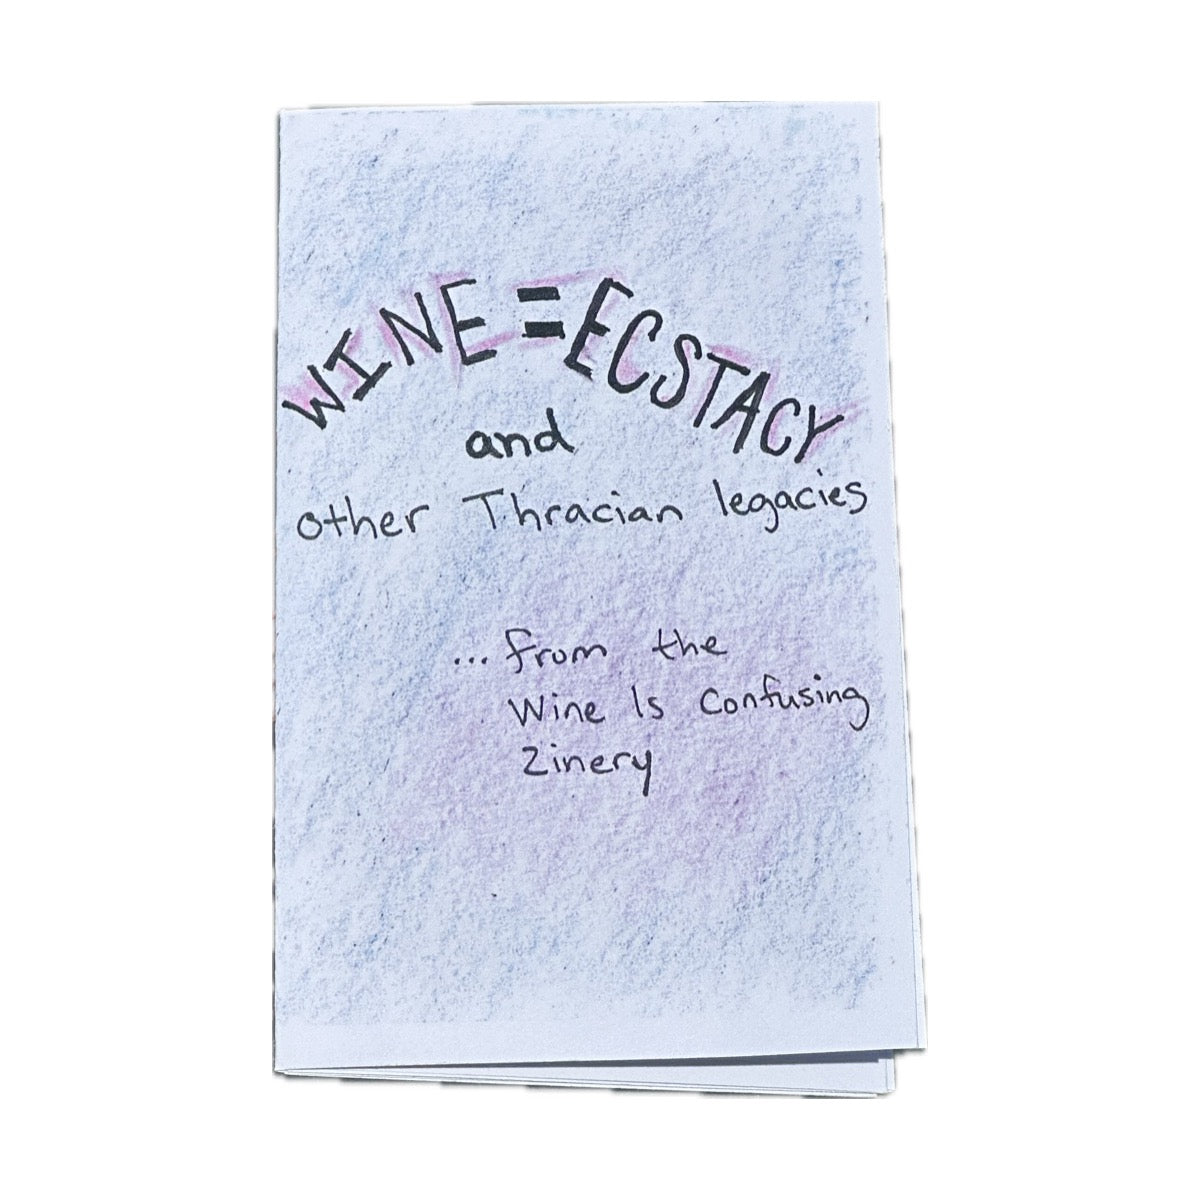 WINE = ECSTACY
and
other Thracian legacies
... from the
Wine Is Confusing
Zinery